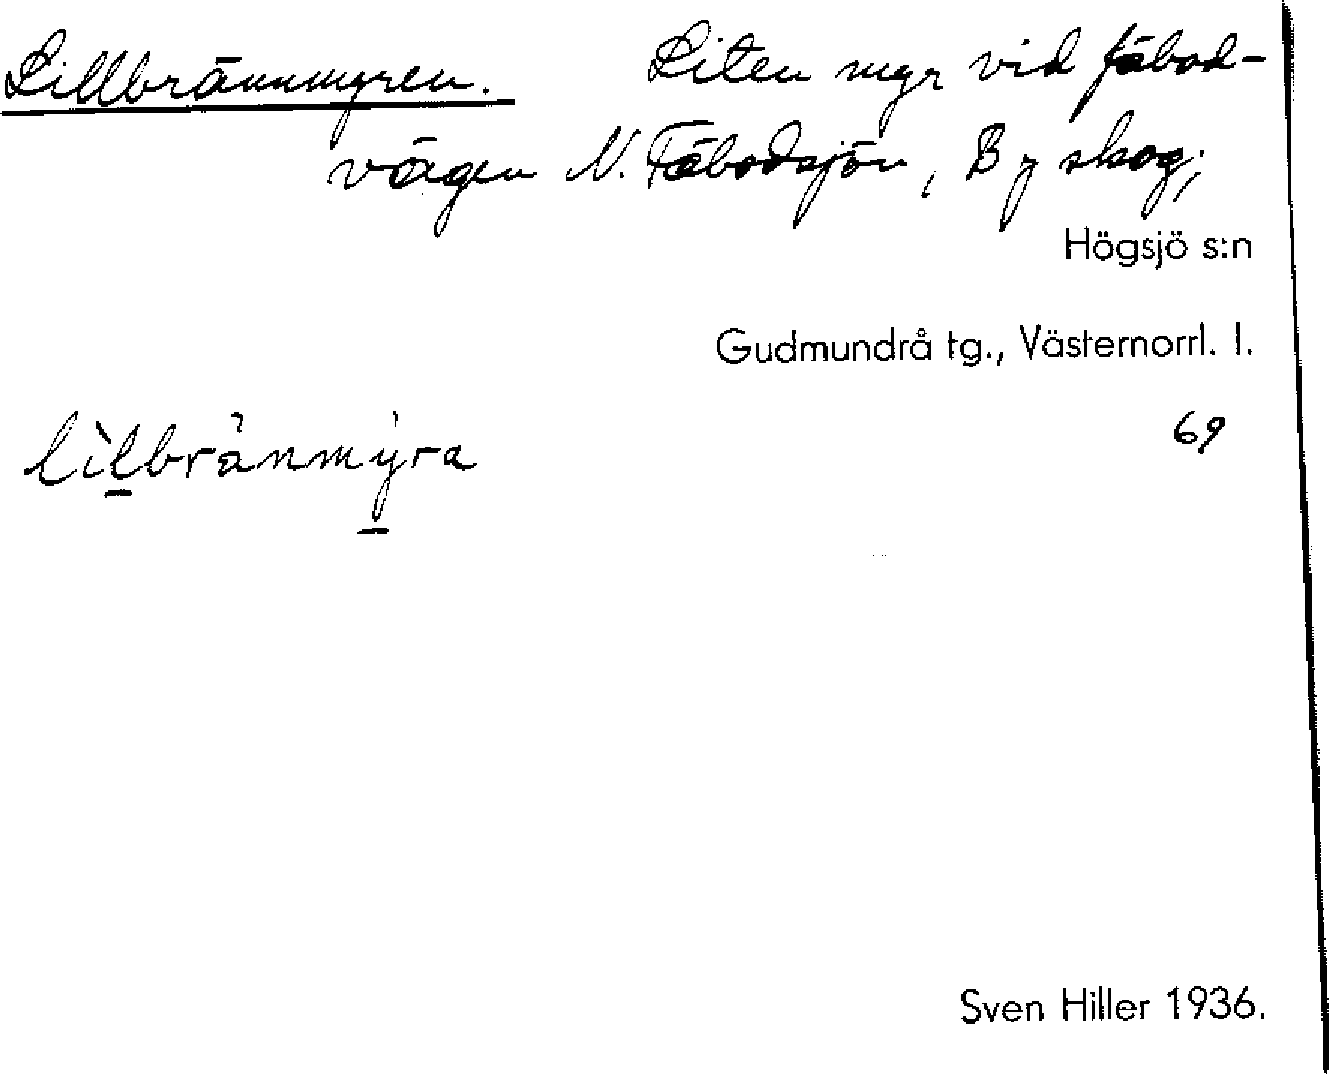 Lillbrännmyren. Liten myr vid fäbod-
vägen N. Fäbodsjön, By skog;
Högsjö s:n
Gudmundrå tg., Västernorrl. l.
69
lìlbrä̀nmỳra
Sven Hiller 1936.